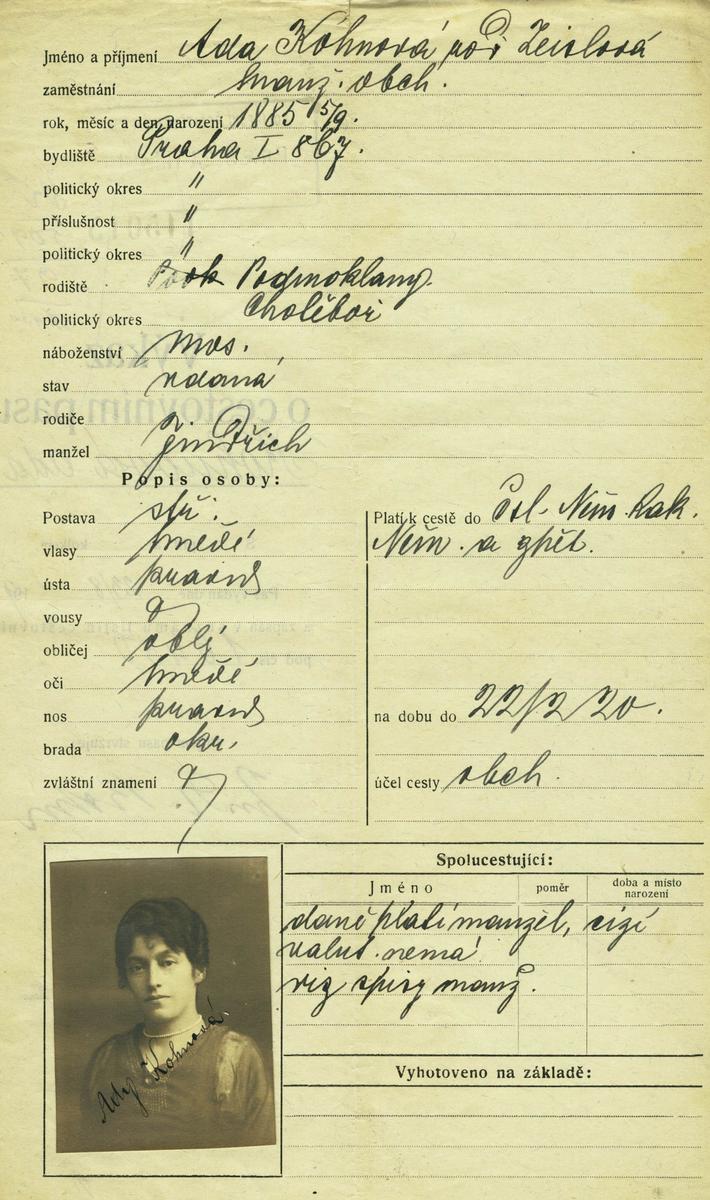 Jméno a příjmení Ada Kohnová roz. Zeislová
zaměstnání manž. obch.
rok, měsíc a den narození 1885 5/9.
bydliště Praha I 867.
politický okres "
příslušnost "
politický okres "
rodiště Podmoklany
politický okres Chotěboř
náboženství mos.
stav vdaná
rodiče
manžel Jindřich
Popis osoby:
Postava stř.
vlasy hnědé
ústa pravid
vousy
obličej oblý
oči hnědé
nos pravid
brada okr.
zvláštní znamení
Platí k cestě do Čsl. Něm. Rak.
Něm. a zpět.
na dobu do 22/2 20.
účel cesty obch.
Spolucestující:
Jméno poměr doba a místo narození
daně platí manžel, cizí
valut. nemá
viz spisy manž.
Vyhotoveno na základě:
Ady Kohnová